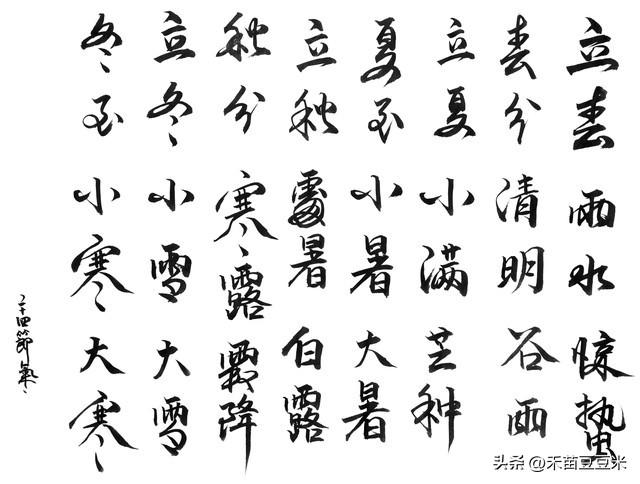 立春雨水惊蛰
春分清明谷雨
立夏小满芒种
夏至小暑大暑
立秋處暑白露
秋分寒露霜降
立冬小雪大雪
冬至小寒大寒
二十四節氣
头条 @禾苗豆豆米